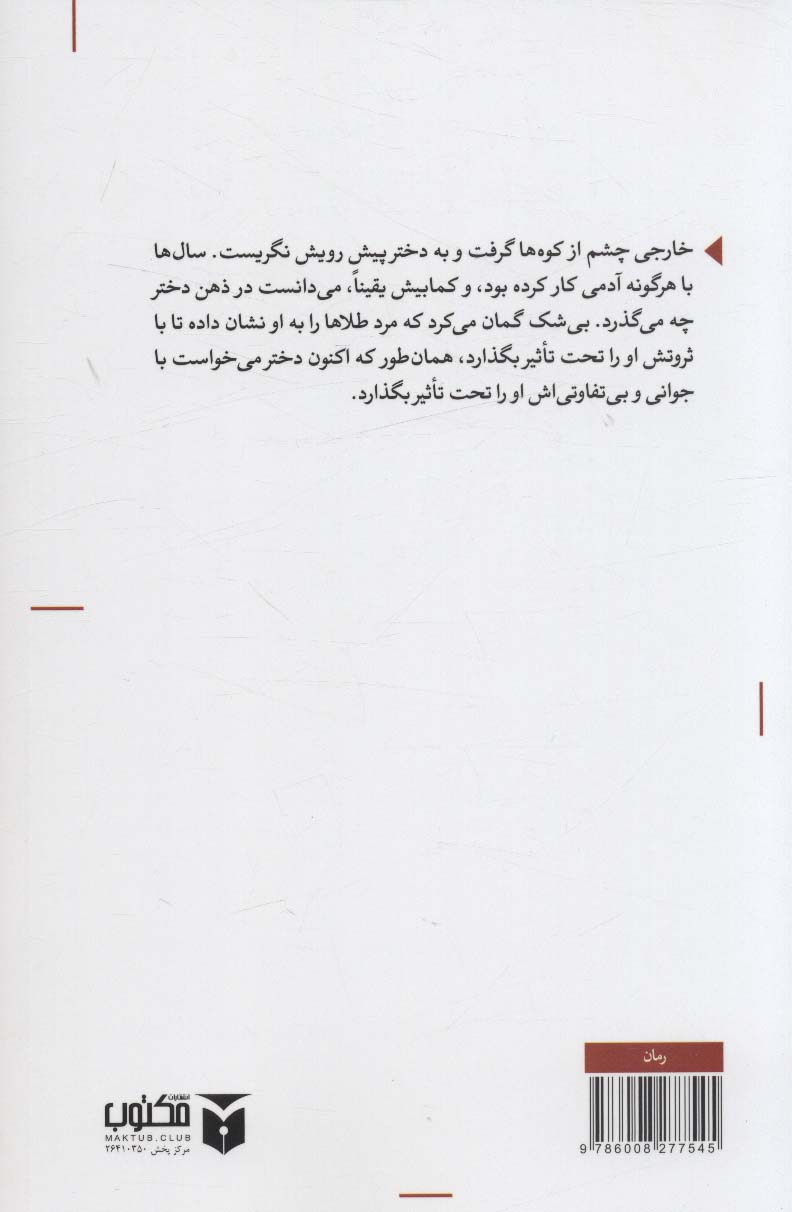 خارجی چشم از کوه‌ها گرفت و به دختر پیش رویش نگریست. سال‌ها
با هرگونه آدمی کار کرده بود، و کمابیش یقیناً، می‌دانست در ذهن دختر
چه می‌گذرد. بی‌شک گمان می‌کرد که مرد طلاها را به او نشان داده تا با
ثروتش او را تحت تأثیر بگذارد، همان‌طور که اکنون دختر می‌خواست با
جوانی و بی‌تفاوتی‌اش او را تحت تأثیر بگذارد.
رمان
9 786008 277545
انتشارات
مکتوب
MAKTUB.CLUB
مرکز پخش ۲۶۴۱۰۳۵۰